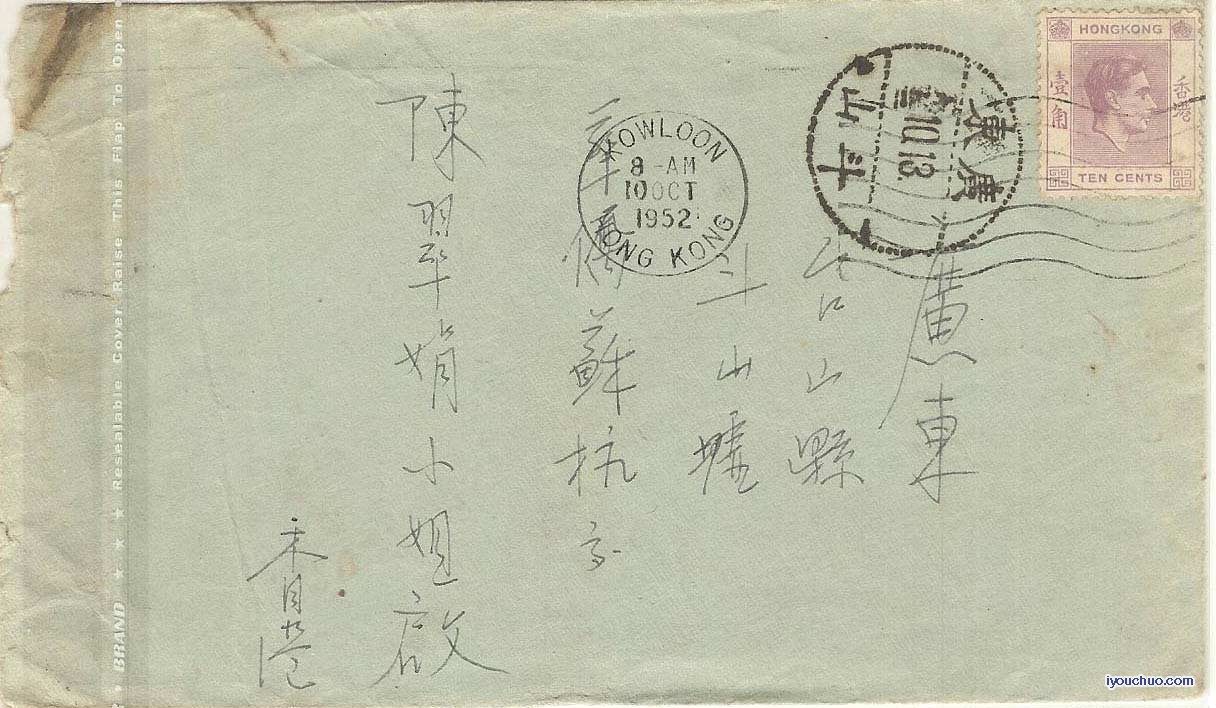 HONGKONG
壹角
香港
TEN CENTS
廣東
斗山
10.13.
KOWLOON
8-AM
10 OCT
1952
HONG KONG
廣東
台山縣
斗山墟
蘇杭
陳翠娟小姐啟
香港
★ ★ Resealable Cover. Raise This Flap To Open
BRAND
iyouchuo.com